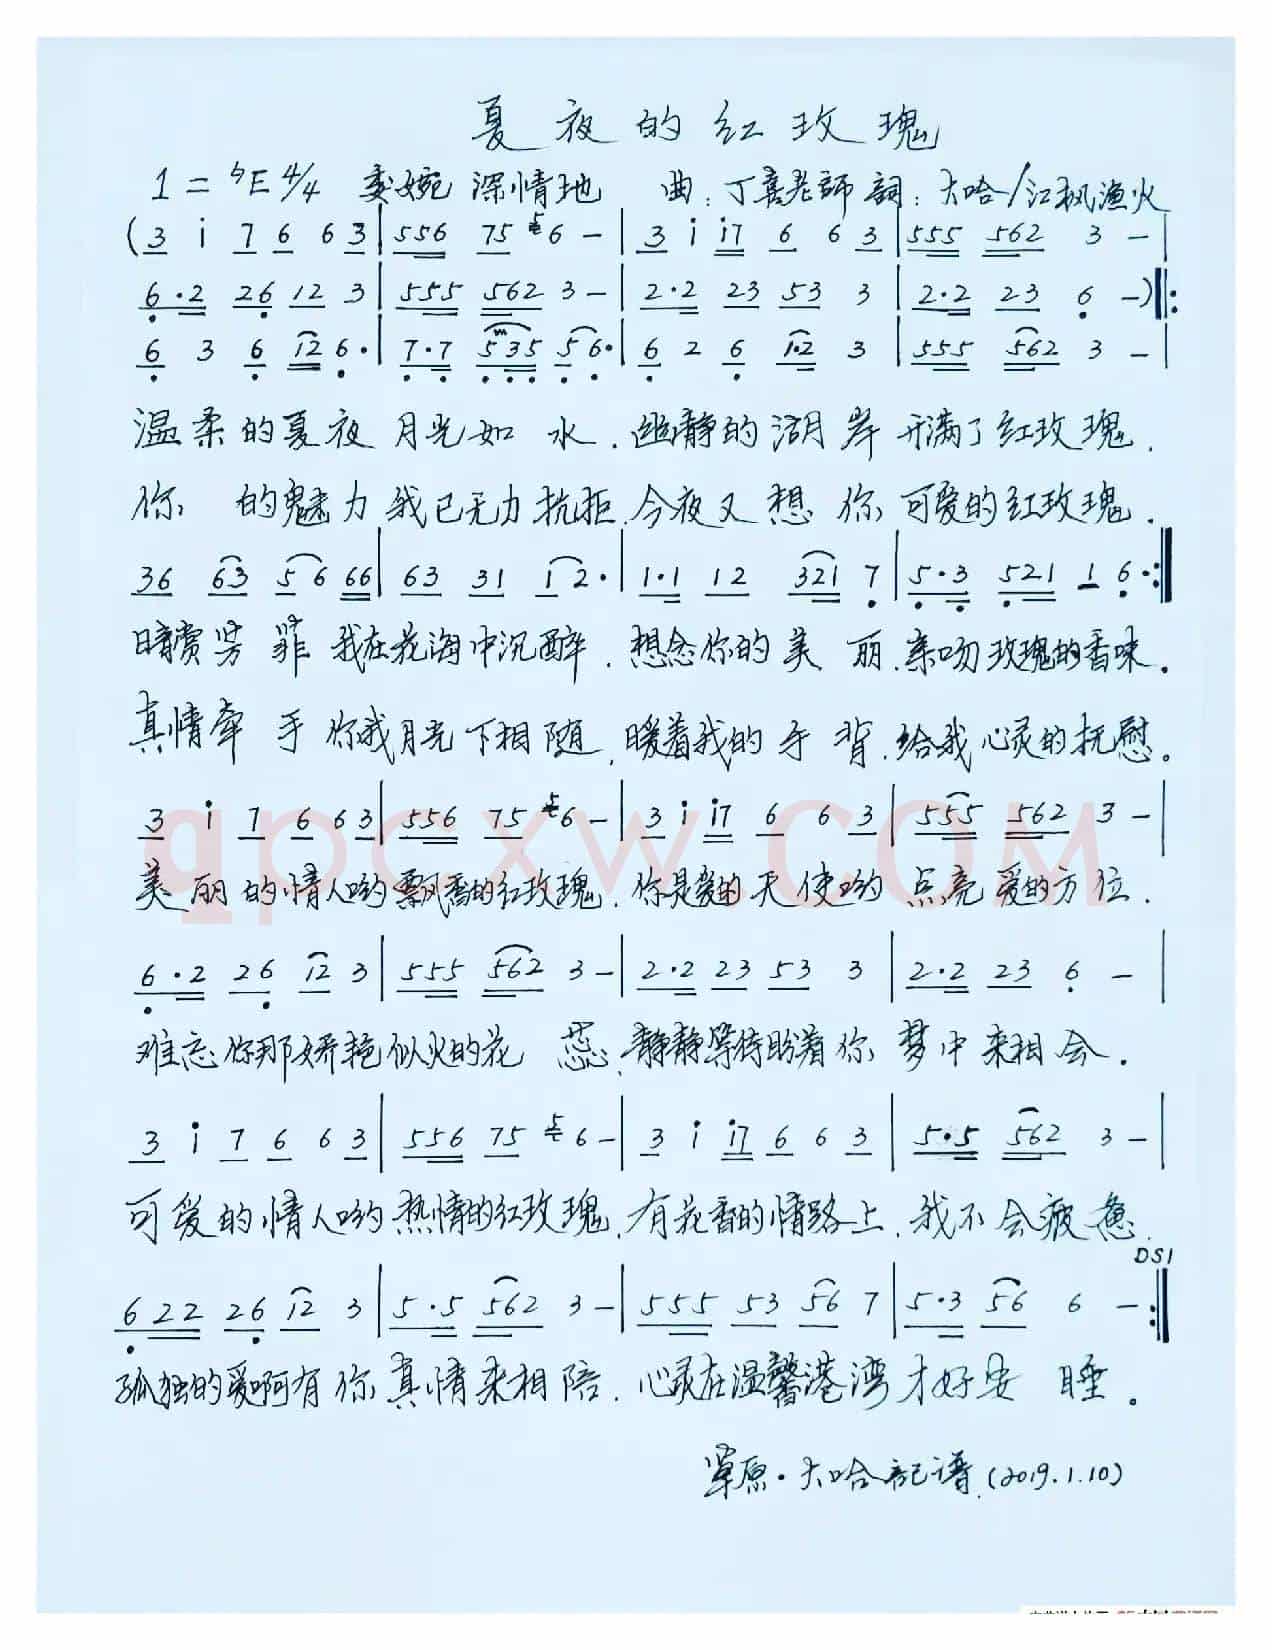 夏夜的红玫瑰
1=♮E 4/4 委婉 深情地 曲:丁喜老師 詞:大哈/江枫渔火
(3 i 7 6 6 3 | 556 75 6 - | 3 i i7 6 6 3 | 555 562 3 - |
6·2 26 12 3 | 555 562 3 - | 2·2 23 53 3 | 2·2 23 6 -) ‖:
6 3 6 12 6· | 7·7 535 56· | 6 2 6 1·2 3 | 555 562 3 - |
温柔的夏夜月光如水.幽静的湖岸开满了红玫瑰.
你的魅力我已无力抗拒.今夜又想你可爱的红玫瑰.
36 63 56 66 | 63 31 12· | 1·1 12 321 7 | 5·3 521 1 6· :‖
晴赏芳菲我在花海中沉醉.想念你的美丽.亲吻玫瑰的香味.
真情牵手你我月光下相随.暖着我的手背.给我心灵的抚慰。
3 i 7 6 6 3 | 556 75 5 6 - | 3 i i7 6 6 3 | 555 562 3 - |
qpcxw.com
美丽的情人哟飘香的红玫瑰.你是爱的天使哟点亮爱的方位.
6·2 26 12 3 | 555 562 3 - | 2·2 23 53 3 | 2·2 23 6 - |
难忘你那娇艳似火的花蕊.静静等待盼着你梦中来相会.
3 i 7 6 6 3 | 556 75 5 6 - | 3 i i7 6 6 3 | 5·5 562 3 - |
可爱的情人哟热情的红玫瑰.有花香的情路上.我不会疲惫.
DS1
622 26 12 3 | 5·5 562 3 - | 555 53 56 7 | 5·3 56 6 - :‖
孤独的爱啊有你真情来相陪.心灵在温馨港湾才好安睡。
草原·大哈記谱.(2019.1.10)